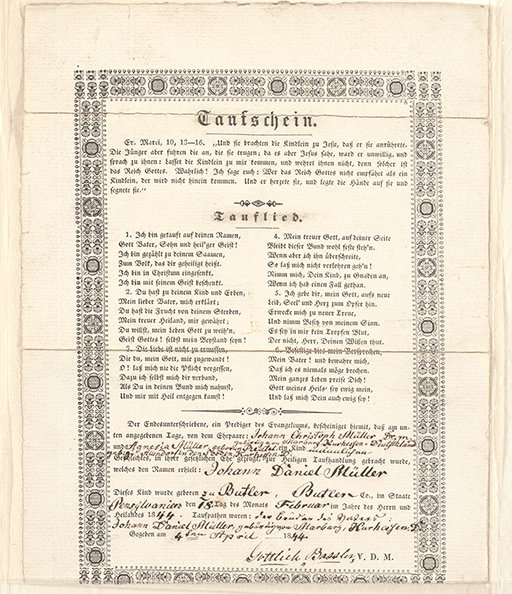 Taufschein.
Ev. Marci, 10, 13—16. „Und sie brachten die Kindlein zu Jesu, daß er sie anrührete.
Die Jünger aber fuhren die an, die sie trugen; da es aber Jesus sahe, ward er unwillig, und
sprach zu ihnen: lasset die Kindlein zu mir kommen, und wehret ihnen nicht, denn solcher ist
das Reich Gottes. Wahrlich! Ich sage euch: Wer das Reich Gottes nicht empfähet als ein
Kindlein, der wird nicht hinein kommen. Und er herzete sie, und legte die Hände auf sie und
segnete sie.“
Tauflied.
1. Ich bin getauft auf deinen Namen,
Gott Vater, Sohn und heil'ger Geist!
Ich bin gezählt zu deinem Saamen,
Zum Volk, das dir geheiligt heißt.
Ich bin in Christum eingesenkt,
Ich bin mit seinem Geist beschenkt.
2. Du hast zu deinem Kind und Erben,
Mein lieber Vater, mich erklärt;
Du hast die Frucht von deinem Sterben,
Mein treuer Heiland, mir gewährt;
Du willst, mein Leben Gott zu weih'n,
Geist Gottes! selbst mein Beystand seyn!
3. Die Liebe ist nicht zu ermessen,
Die du, mein Gott, mir zugewandt!
O! laß mich nie die Pflicht vergessen,
Dazu ich selbst mich dir verband,
Als Du in deinen Bund mich nahmst,
Und mir mit Heil entgegen kamst!
4. Mein treuer Gott, auf deiner Seite
Bleibt dieser Bund wohl feste steh'n.
Wenn aber ich ihn überschreite,
So laß mich nicht verlohren geh'n!
Nimm mich, Dein Kind, zu Gnaden an,
Wenn ich hab einen Fall gethan.
5. Ich gebe dir, mein Gott, aufs neue
Leib, Seel' und Herz zum Opfer hin.
Erwecke mich zu neuer Treue,
Und nimm Besitz von meinem Sinn.
Es sey in mir kein Tropfen Blut,
Der nicht, Herr, Deinen Willen thut.
6. Befestige dies mein Versprechen,
Mein Vater! und bewahre mich,
Daß ich es niemals möge brechen.
Mein ganzes Leben preise Dich!
Gott meines Heils! sey ewig mein,
Und laß mich Dein auch ewig sey!
Der Endesunterschriebene, ein Prediger des Evangeliums, bescheiniget hiemit, daß am
unten angegebenen Tage, von dem Ehepaare: Johann Christoph Müller
und Agnesia Müller, ein Kind männlichen
Geschlechts, in ihrer gesetzlichen Ehe gezeuget, zur Heiligen Taufhandlung gebracht wurde,
welches den Namen erhielt: Johann Daniel Müller
Dieses Kind wurde geboren zu Butler, Butler Co., im Staate
Pensylvanien den 18 Tag des Monats Februar im Jahre des Herrn und
Heilandes 1844. Taufpathen waren: der Bruder des
Johann Daniel Müller, gebürtig von Marburg, Kurhessen
Gegeben am 4ten April 1844.
Gottlieb Bassler, V. D. M.